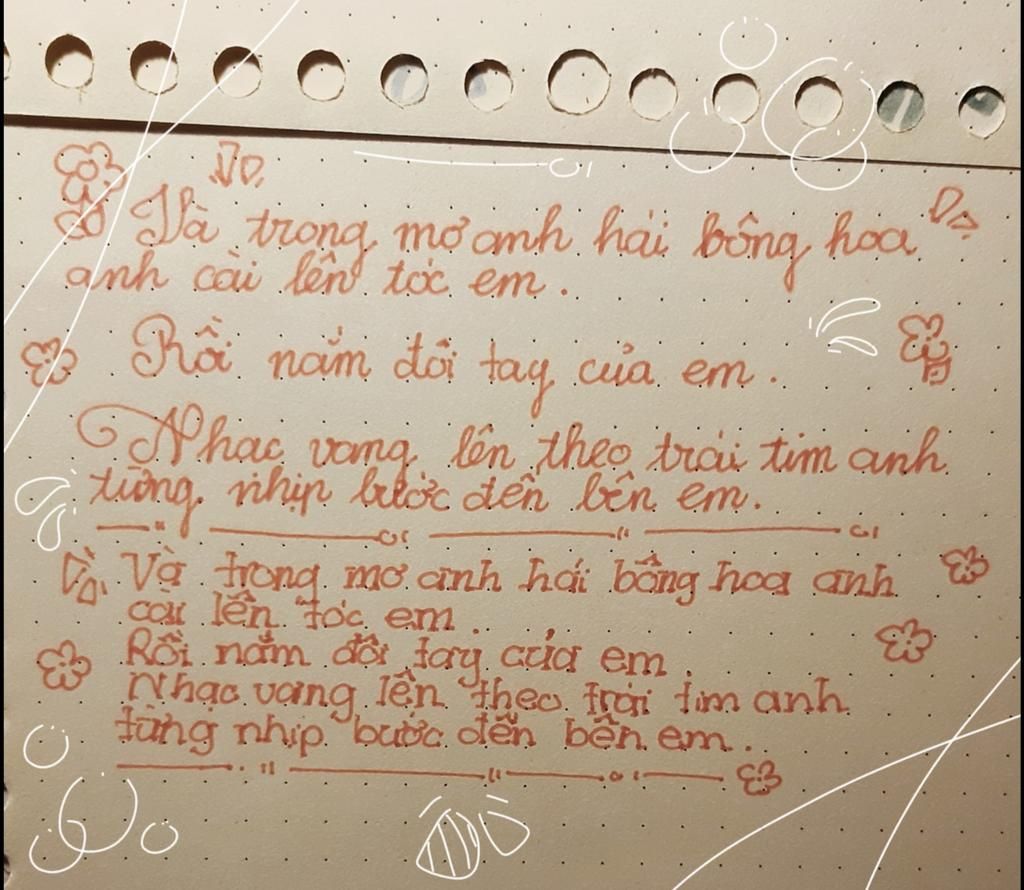 Và trong mơ anh hái bông hoa
anh cài lên tóc em.
Rồi nắm đôi tay của em.
Nhạc vang lên theo trái tim anh
từng nhịp bước đến bên em.
Và trong mơ anh hái bông hoa anh
cài lên tóc em.
Rồi nắm đôi tay của em
Nhạc vang lên theo trái tim anh
từng nhịp bước đến bên em.